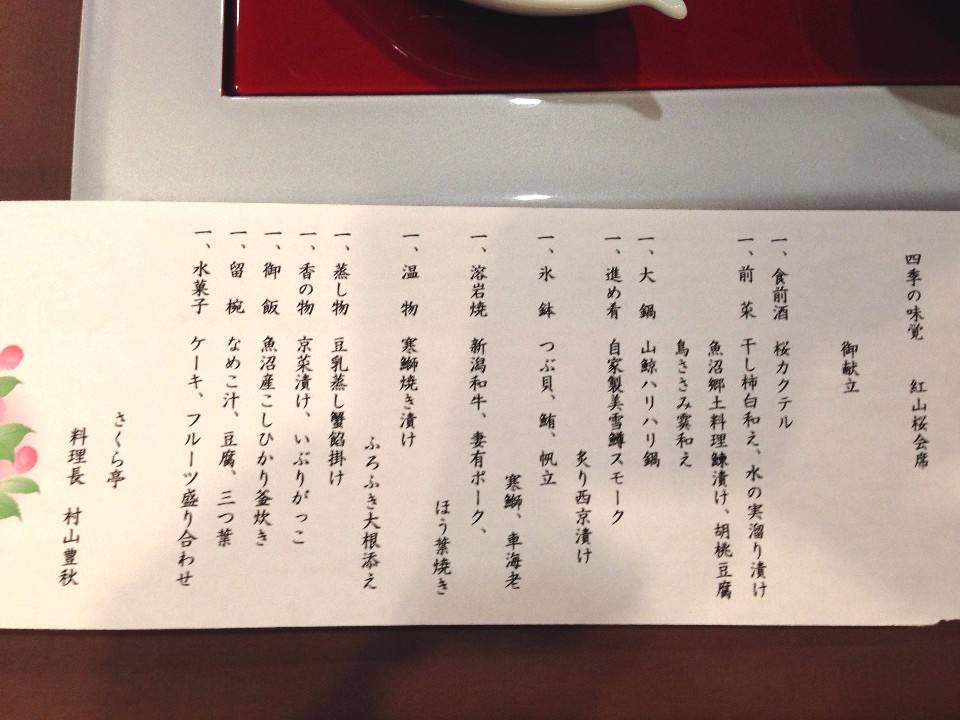 四季の味覚 紅山桜会席
御献立
一、食前酒 桜カクテル
一、前菜 干し柿白和え、水の実溜り漬け
魚沼郷土料理鰊漬け、胡桃豆腐
鳥ささみ霙和え
一、大鍋 山鯨ハリハリ鍋
一、進め肴 自家製美雪鱒スモーク
炙り西京漬け
一、氷鉢 つぶ貝、鮪、帆立
寒鰤、車海老
一、溶岩焼 新潟和牛、妻有ポーク、
ほう葉焼き
一、温物 寒鰤焼き漬け
ふろふき大根添え
一、蒸し物 豆乳蒸し蟹餡掛け
一、香の物 京菜漬け、いぶりがっこ
一、御飯 魚沼産こしひかり釜炊き
一、留椀 なめこ汁、豆腐、三つ葉
一、水菓子 ケーキ、フルーツ盛り合わせ
さくら亭
料理長 村山豊秋